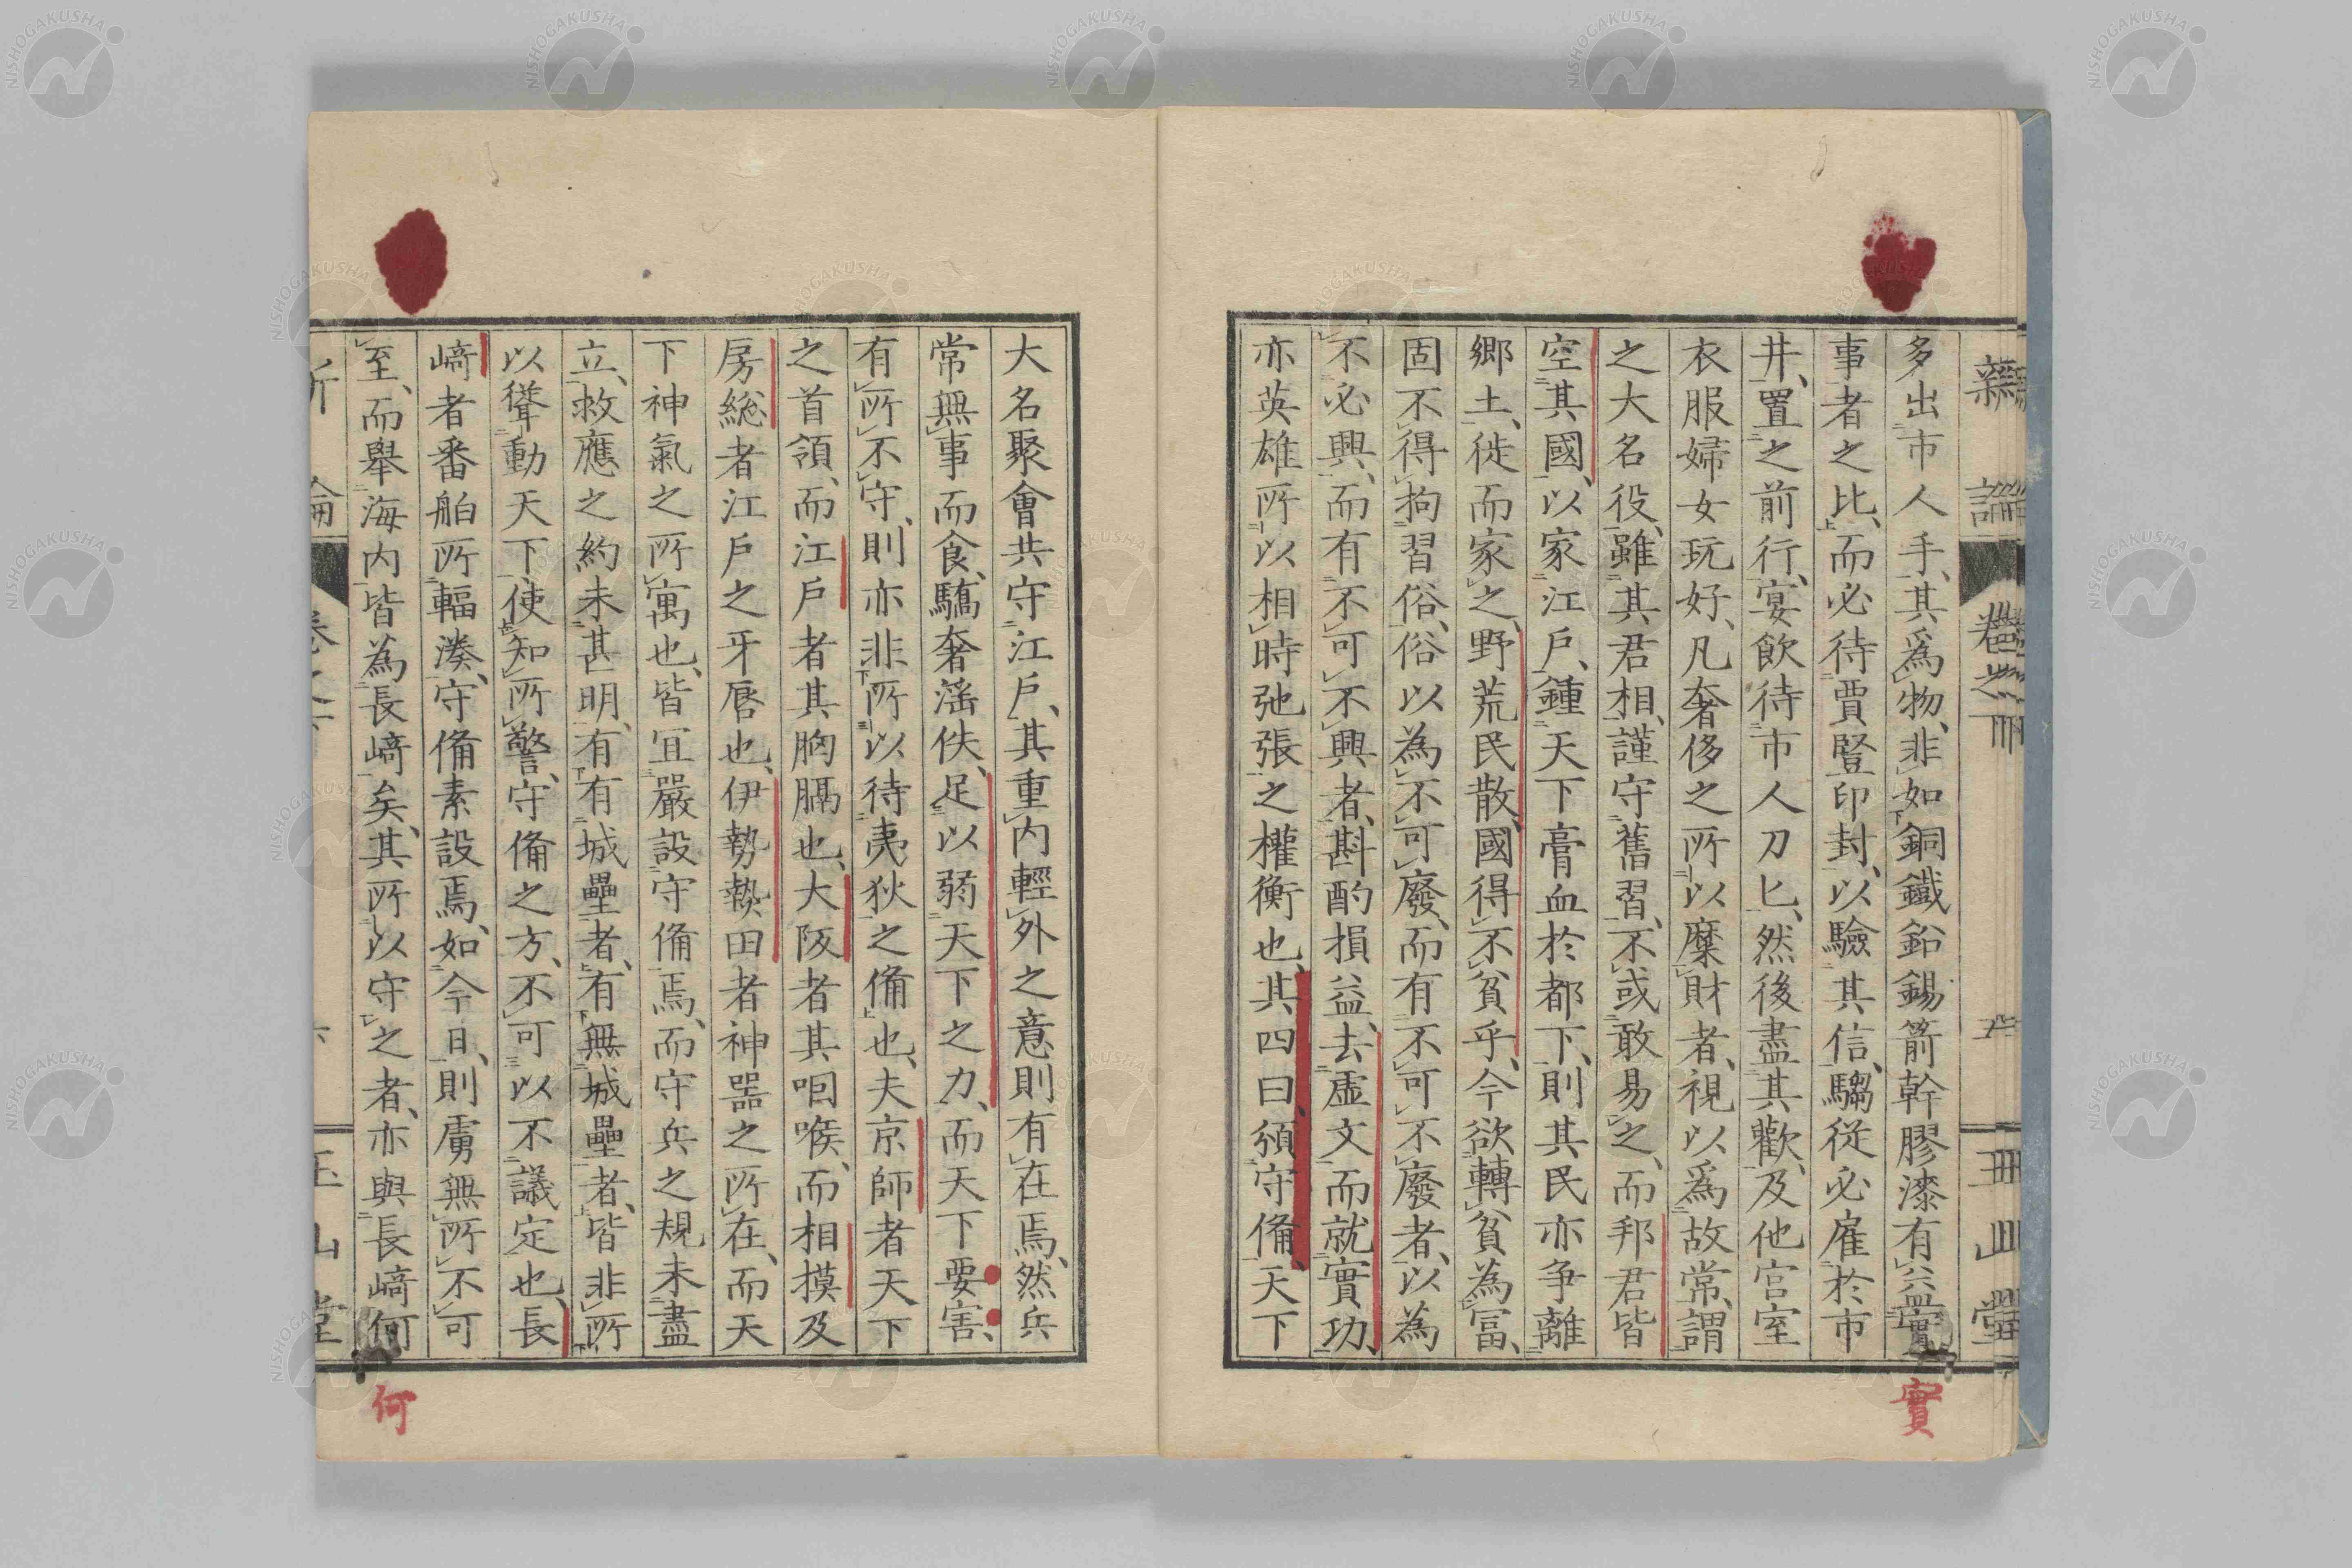 新論 卷之下 五 玉山堂
多出市人手、其爲物、非如銅鐵鉛錫箭幹膠漆有益實
事者之比、而必待賈豎印封、以驗其信、騶從必雇於市
井、置之前行、宴飲待市人刀匕、然後盡其歡、及他宮室
衣服婦女玩好、凡奢侈之所以糜財者、視以爲故常、謂
之大名役、雖其君相、謹守舊習、不或敢易之、而邦君皆
空其國、以家江戶、鍾天下膏血於都下、則其民亦爭離
鄉土、徙而家之、野荒民散、國得不貧乎、今欲轉貧為富、
固不得拘習俗、俗以為不可廢、而有不可不廢者、以為
不必興、而有不可不興者、斟酌損益、去虛文而就實功、
亦英雄所以相時弛張之權衡也、其四曰、頒守備、天下
實
大名聚會共守江戶、其重內輕外之意則有在焉、然兵
常無事而食、驕奢滛佚、足以弱天下之力、而天下要害、
有所不守、則亦非所以待夷狄之備也、夫京師者天下
之首領、而江戶者其胸膈也、大阪者其咽喉、而相摸及
房総者江戶之牙唇也、伊勢𤍠田者神器之所在、而天
下神氣之所寓也、皆宜嚴設守備焉、而守兵之規未盡
立、救應之約未甚明、有有城壘者、有無城壘者、皆非所
以聳動天下、使知所警、守備之方、不可以不議定也、長
﨑者番舶所輻湊、守備素設焉、如今日、則虜無所不可
至、而舉海內皆為長﨑矣、其所以守之者、亦與長﨑何
新論 卷之下 玉山堂
何
NISHOGAKUSHA